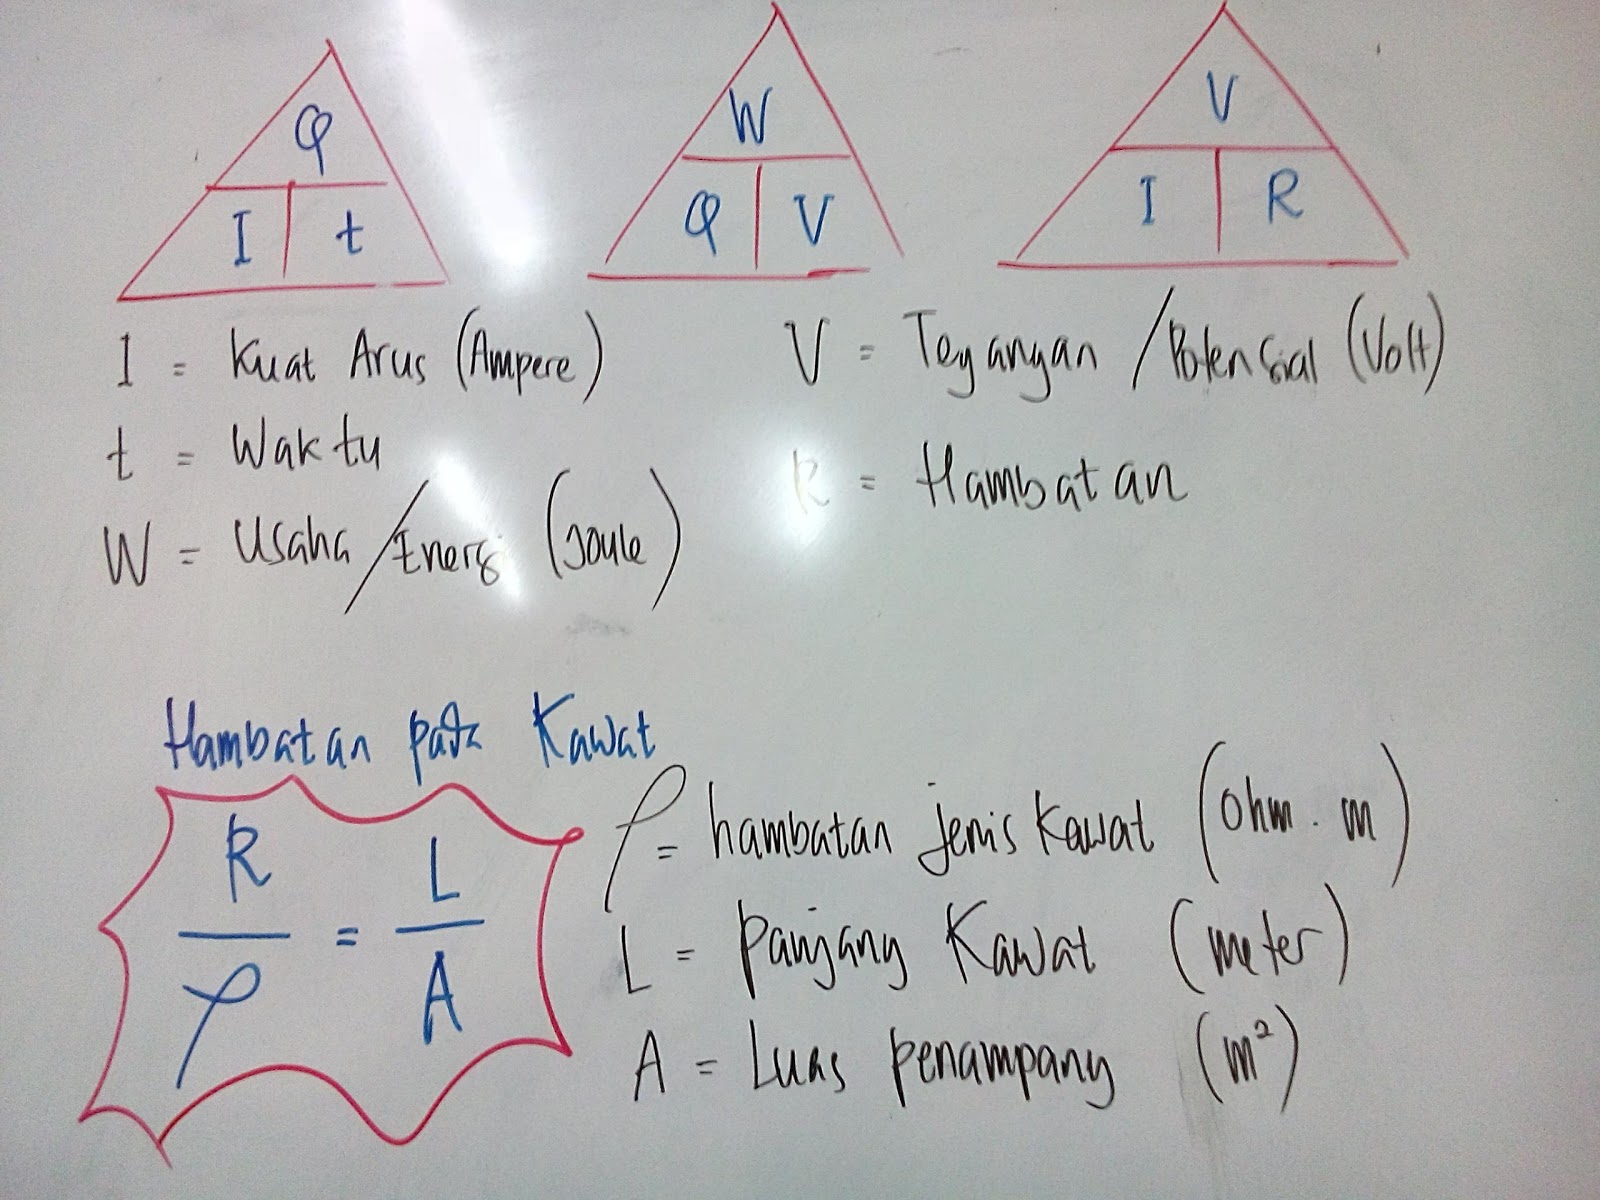 Q
I t
W
Q V
V
I R
I = Kuat Arus (Ampere)
t = Waktu
W = Usaha / Energi (Joule)
V = Tegangan / Potensial (Volt)
R = Hambatan
Hambatan pada Kawat
R/ρ = L/A
ρ = hambatan jenis kawat (Ohm . m)
L = Panjang Kawat (meter)
A = Luas penampang (m²)